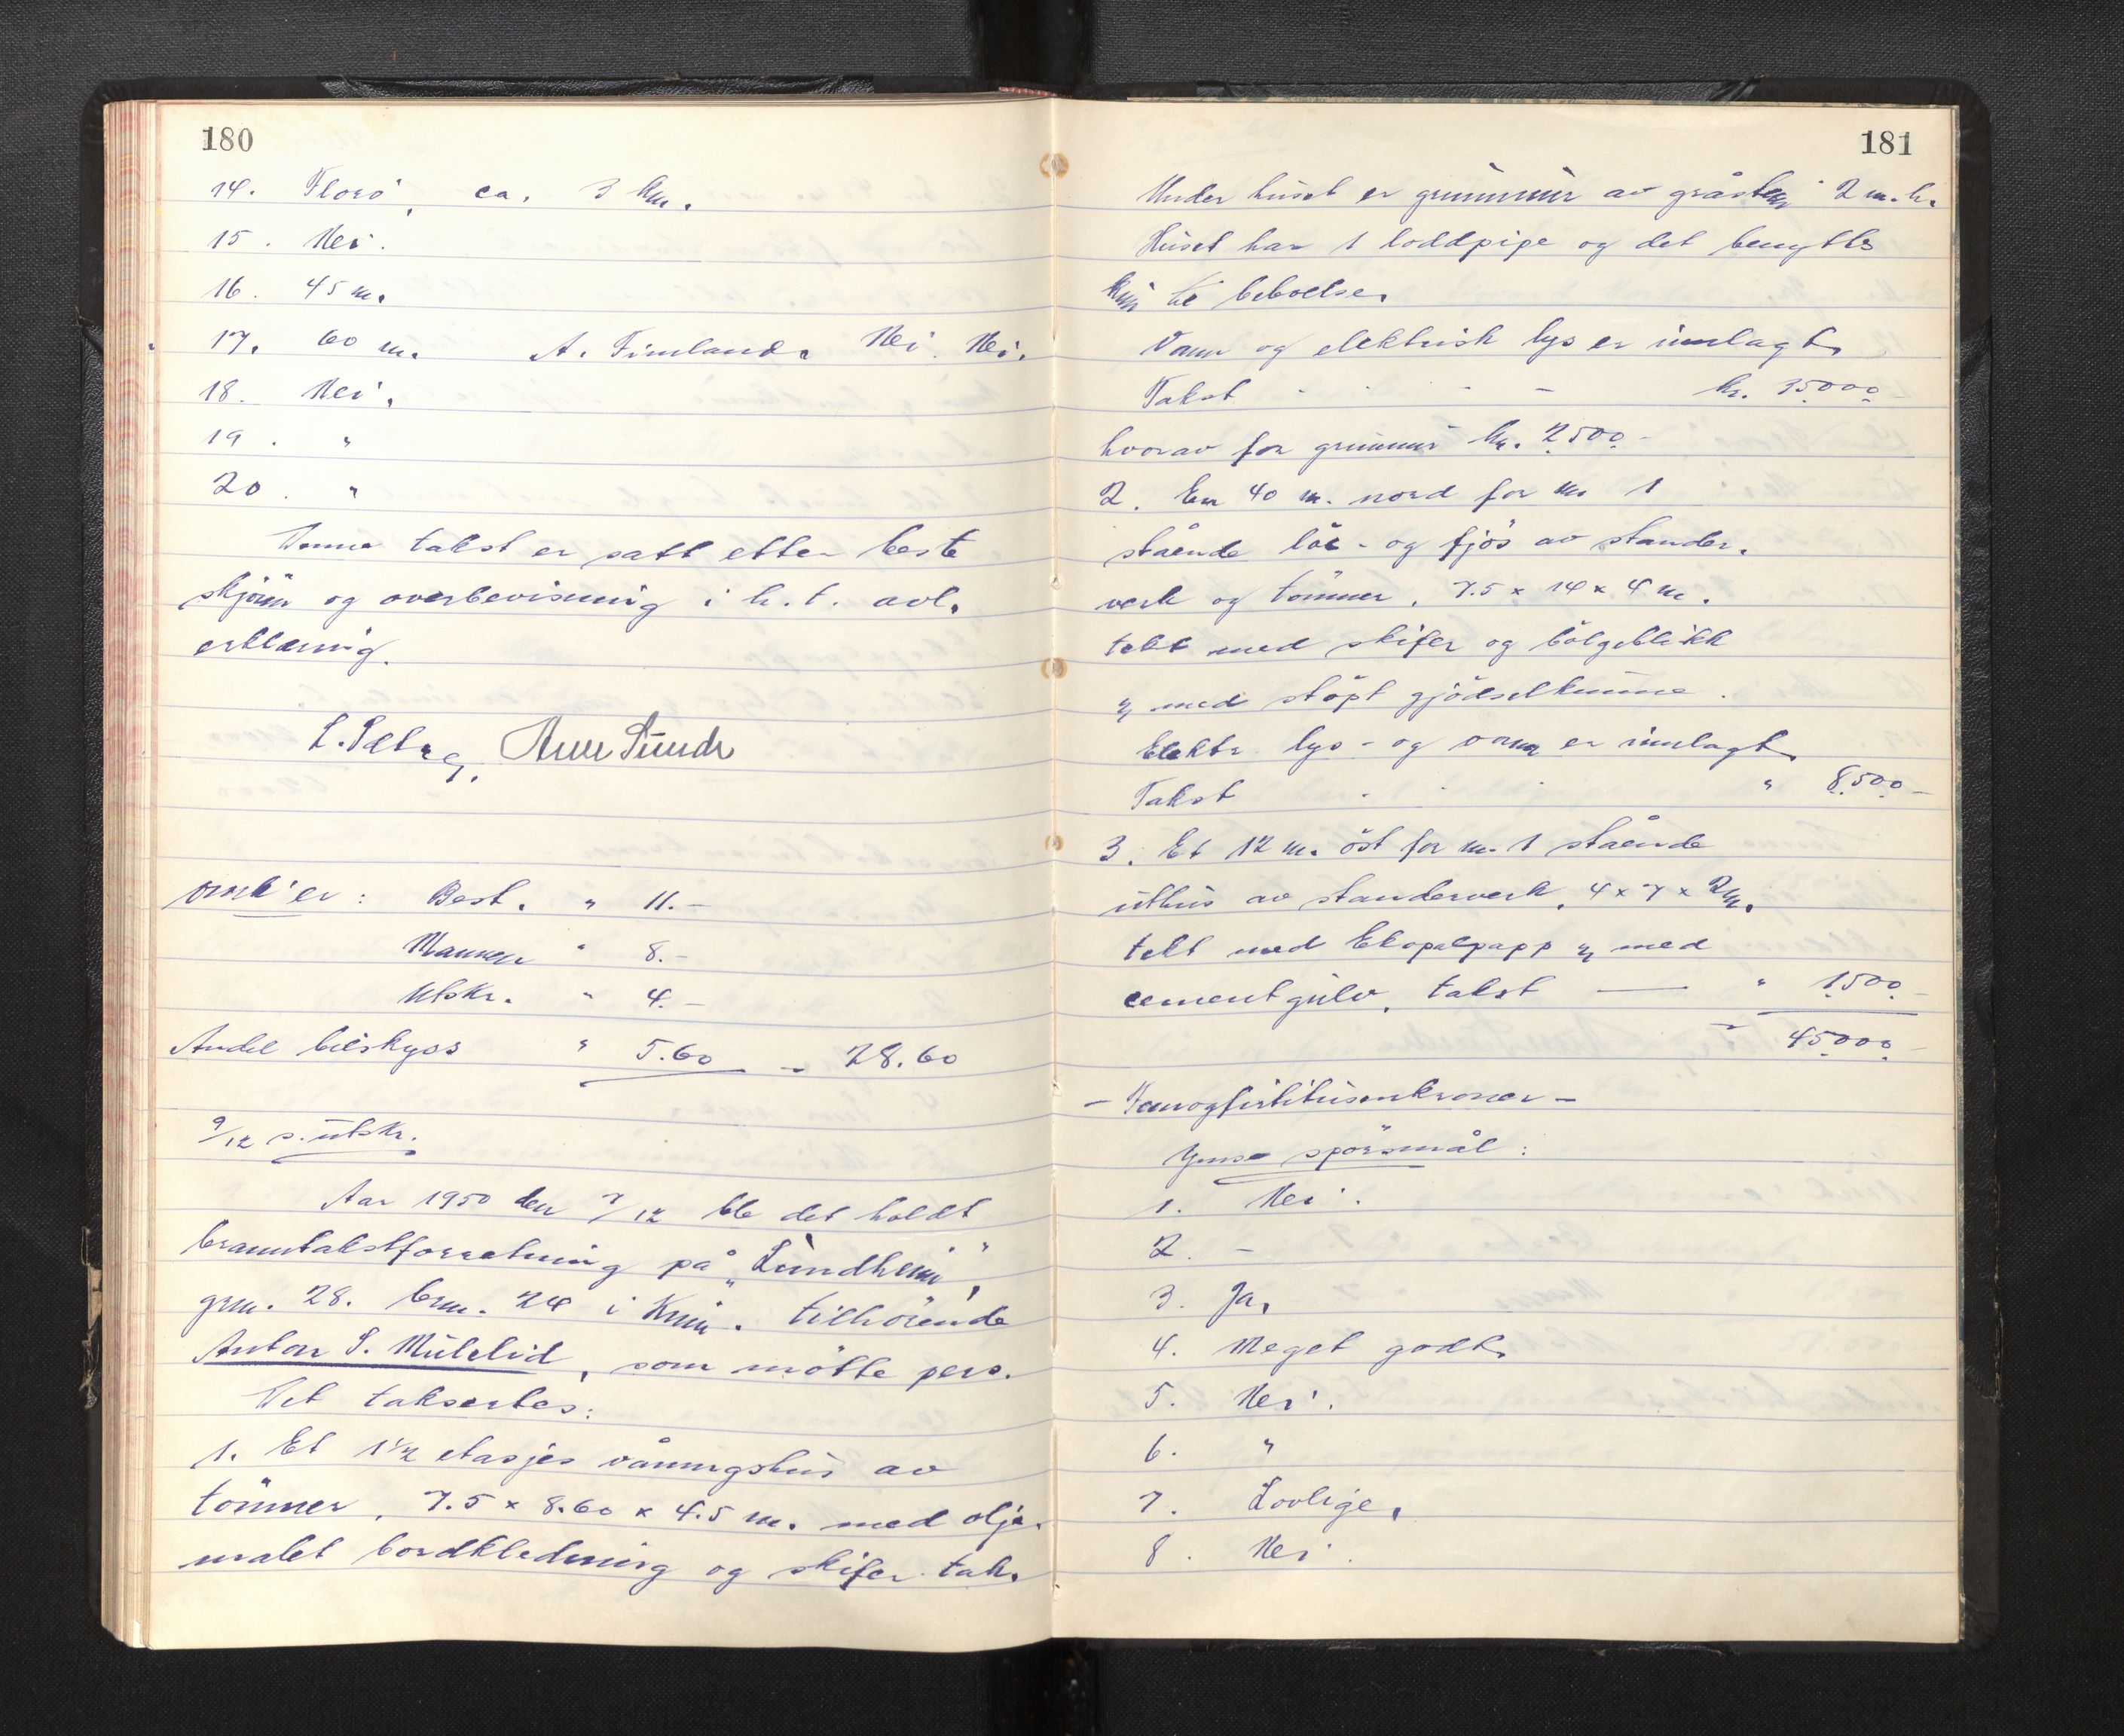 180
14. Florö, ca. 3 km.
15. Nei.
16. 45 m.
17. 60 m. A. Fimland. Nei. Nei.
18. Nei.
19. "
20. "
Denne takst er satt etter beste
skjönn og overbevisning i h.t. avl.
erklæring.
Omk'er: Best. " 11.-
Mannen " 8.-
Utskr. " 4.-
Andel bilskyss " 5.60 = 28.60
9/12 s. utskr.
Aar 1950 den 7/12 ble det holdt
branntakstforretning på "Lundheim",
grn. 28. brn. 24 i Kinn. tilhörende
Anton S. Mulelid, som mötte pers.
Det taksertes:
1. Et 1 1/2 etasjes våningshus av
tömmer, 7.5 x 8.60 x 4.5 m. med olje-
malet bordkledning og skifer tak.
181
Under huset er grunnmur av gråsten 2 m.h.
Huset har 1 loddpipe og det benyttes
kun til beboelse.
Vann og elektrisk lys er innlagt.
Takst - - - - kr. 35.000.-
hvorav for grunnmur kr. 2.500.-
2. En 40 m. nord for nr 1
stående löe- og fjös av stander-
verk og tömmer, 7.5 x 14 x 4 m.
tekt med skifer og bölgeblikk
og med stöpt gjödselkumme.
Elektr. lys- og vann er innlagt.
Takst - - - " 8.500.-
3. Et 12 m. öst for nr. 1 stående
uthus av standerverk, 4 x 7 x 2 m.
tekt med Ekopalpapp og med
cementgulv, takst — " 1.500.-
= 45.000.-
- Femogførtitusenkroner -
Ymse spörsmål:
1. Nei.
2. -
3. Ja.
4. Meget godt.
5. Nei.
6. "
7. Lovlige.
8. Nei.